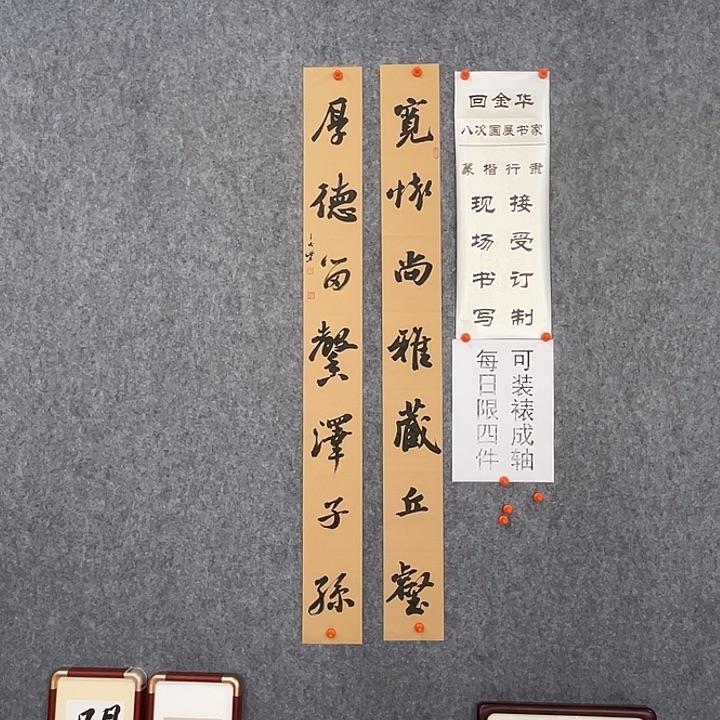 回金华
八次国展书家
篆楷行隶
接受订制
现场书写
可装裱成轴
每日限四件
寬懷尚雅藏丘壑
厚德留馨澤子孫